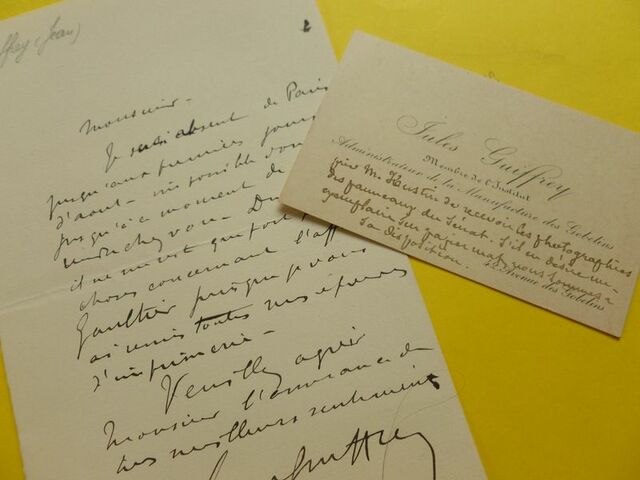 ffrey (Jean)
Monsieur -
Je suis absent de Paris
jusqu'aux premiers jours
d'aout -
jusqu'à ce moment de
rendre chez vous. Du
il ne m'est que fort
choses concernant l'aff
Gaultier puisque je vous
ai remis toutes mes épreuves
d'imprimerie -
Veuillez agréer
Monsieur l'assurance de
mes meilleurs sentiments
Jules Guiffrey
Membre de l'Institut
Administrateur de la Manufacture des Gobelins
prie M. de recevoir les photographies
des panneaux du Sénat. S'il en désire un
exemplaire sur papier mat nous sommes à
sa disposition.
42, Avenue des Gobelins